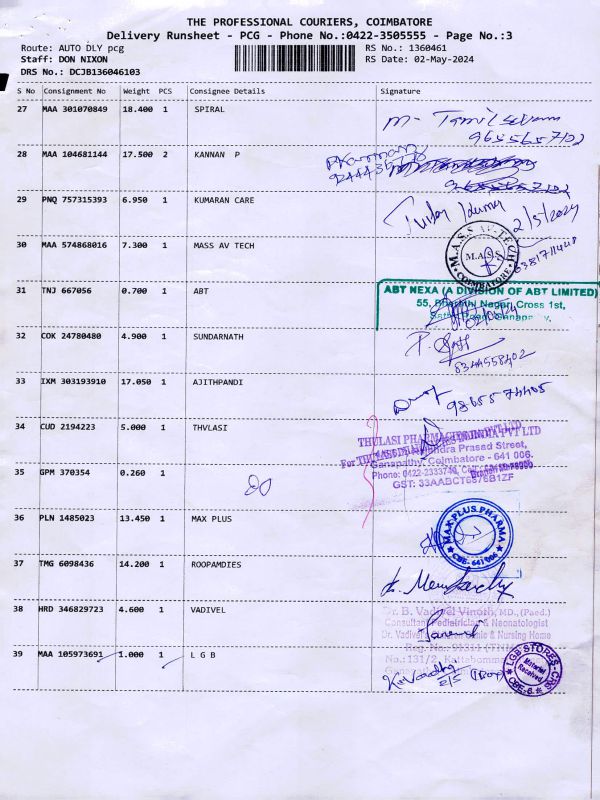 THE PROFESSIONAL COURIERS, COIMBATORE
Delivery Runsheet - PCG - Phone No.:0422-3505555 - Page No.:3
Route: AUTO DLY pcg
RS No.: 1360461
Staff: DON NIXON
RS Date: 02-May-2024
DRS No.: DCJB136046103
S No Consignment No Weight PCS Consignee Details Signature
27 MAA 301070849 18.400 1 SPIRAL
M- Tamilselvam
9655657102
28 MAA 104681144 17.500 2 KANNAN P
29 PNQ 757315393 6.950 1 KUMARAN CARE
2/5/2024
30 MAA 574868016 7.300 1 MASS AV TECH
M.A.S.S AV TECH
M.A.S.S
COIMBATORE
31 TNJ 667056 0.700 1 ABT
ABT NEXA (A DIVISION OF ABT LIMITED)
55, Bharathi Nagar, Cross 1st,
32 COK 24780480 4.900 1 SUNDARNATH
8344558402
33 IXM 303193910 17.050 1 AJITHPANDI
9865574405
34 CUD 2194223 5.000 1 THVLASI
THULASI PHARMACIES INDIA PVT LTD
Prasad Street,
Ganapathy, Coimbatore - 641 006.
Phone: 0422-2333744
GST: 33AABCT6876B1ZF
35 GPM 370354 0.260 1
36 PLN 1485023 13.450 1 MAX PLUS
MAX PLUS PHARMA
CBE-641 006
37 TMG 6098436 14.200 1 ROOPAMDIES
38 HRD 346829723 4.600 1 VADIVEL
Dr. B. Vadivel Vinoth, MD., (Paed.)
Consultant Pediatrician & Neonatologist
Dr. Vadivel's Clinic & Nursing Home
Reg. No.: 91311 (TN)
No.:131/2,
39 MAA 105973691 1.000 1 L G B
LGB STORES-CNS
Material
Received
CBE-6
2/5